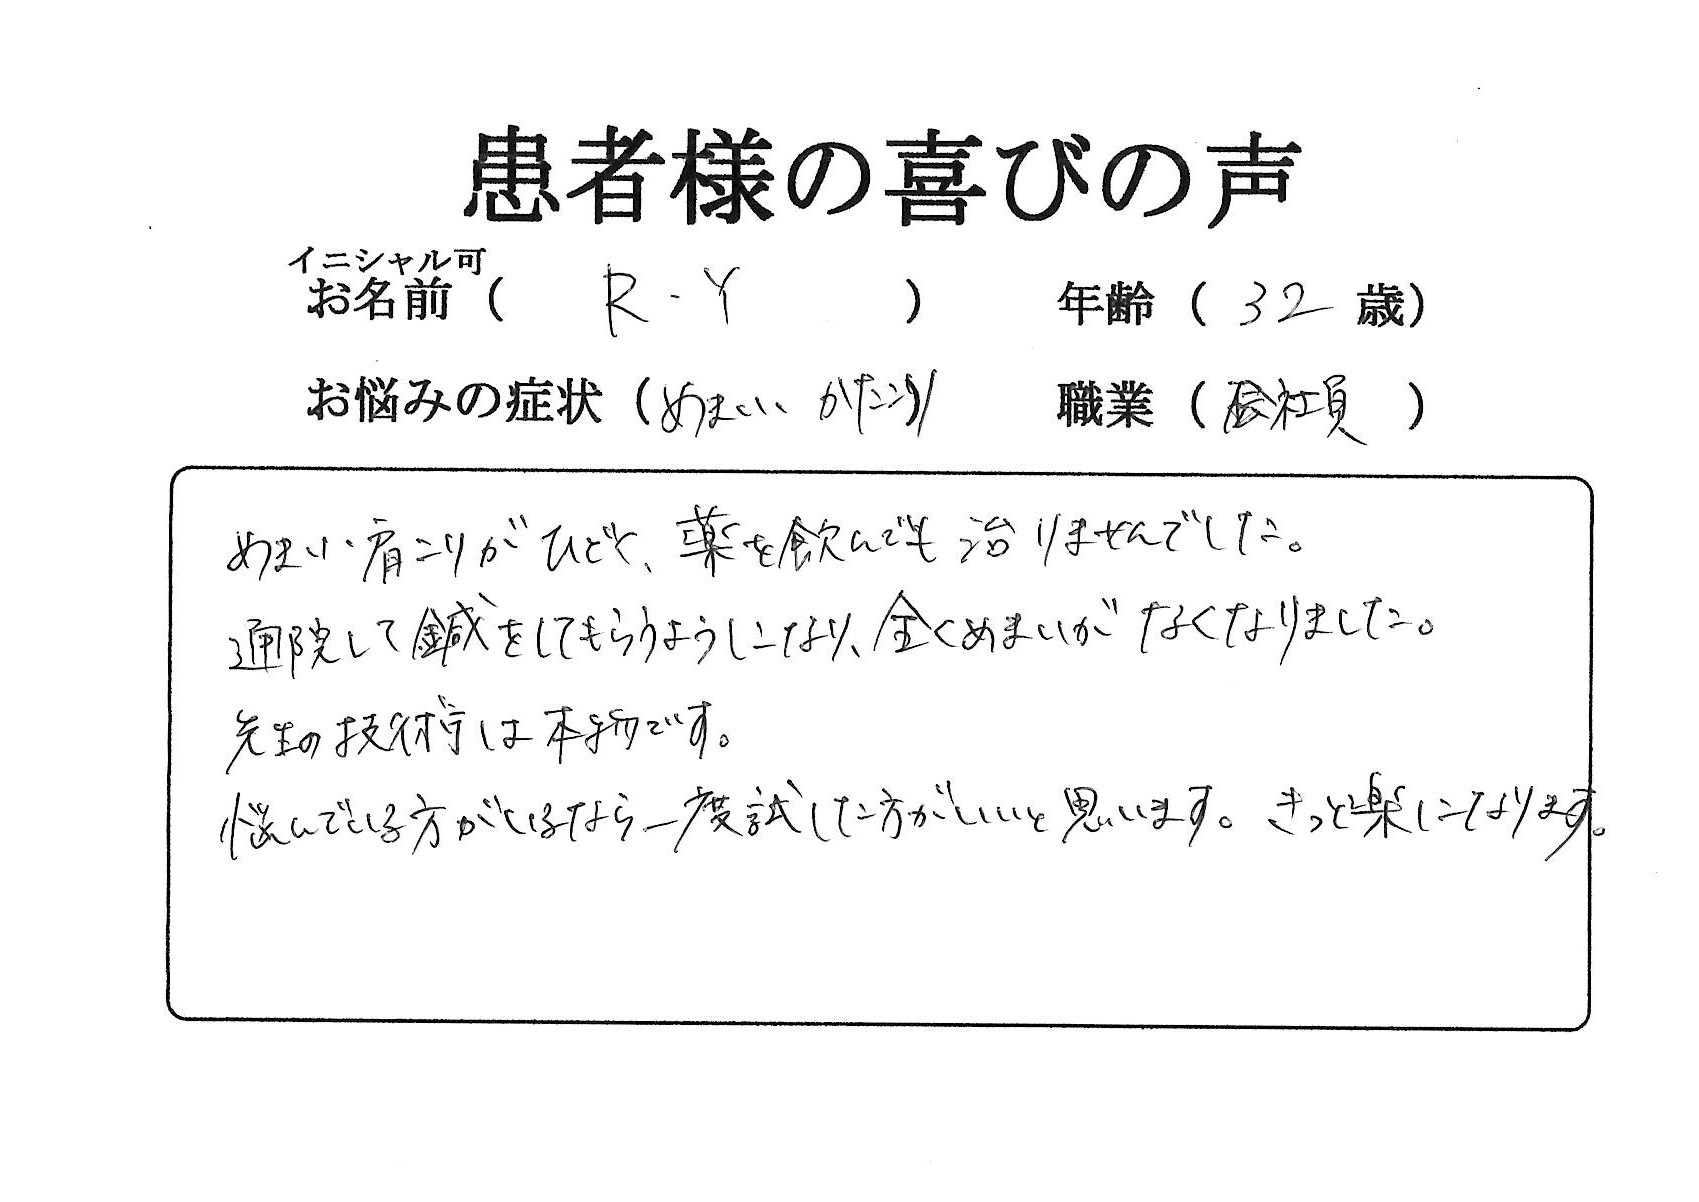 患者様の喜びの声
イニシャル可
お名前 ( R・Y ) 年齢 ( 32 歳)
お悩みの症状 (めまい、かたこり) 職業 (会社員)
めまい・肩こりがひどく、薬を飲んでも治りませんでした。
通院して鍼をしてもらうようになり、全くめまいがなくなりました。
先生の技術は本物です。
悩んでいる方がいるなら一度試した方がいいと思います。きっと楽になります。